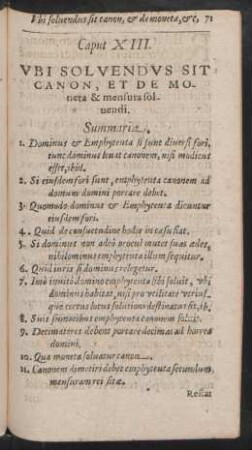 Vbi soluendus sit canon, & de moneta, &c, 71
Caput XIII.
VBI SOLVENDVS SIT
CANON, ET DE MO-
neta & mensura sol-
uendi.
Summaria.
1. Dominus & Emphyteuta si sunt diuersi fori,
tunc dominus leuat canonem, nisi modicus
esset, ibid.
2. Si eiusdem fori sunt, emphyteuta canonem ad
domum domini portare debet.
3. Quomodo dominus & Emphyteuta dicuntur
eiusdem fori.
4. Quid de consuetudine hodie in casu fiat.
5. Si dominus non adeò procul mutet suas ædes,
nihilominus emphyteuta illum sequitur.
6. Quid iuris si dominus relegetur.
7. Imò inuito domino emphyteuta ibi soluit, vbi
dominus habitat, nisi pro vtilitate vtrius-
que certus locus solutioni destinatus sit, ib.
8. Suis sumtibus emphyteuta canonem soluit.
9. Decimatores debent portare decimas ad horrea
domini.
10. Qua moneta soluatur canon.
11. Canonem dimetiri debet emphyteuta secundum
mensuram rei sitæ.
Restat